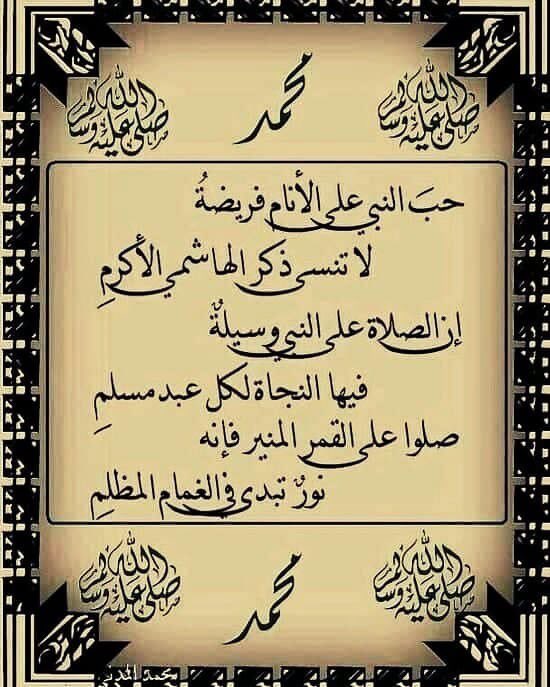 صلى الله عليه وسلم محمد صلى الله عليه وسلم
حبَ النبي على الأنام فريضةُ
لا تنسى ذكر الهاشمي الأكرمِ
إن الصلاة على النبي وسيلةٌ
فيها النجاة لكل عبد مسلمِ
صلوا على القمر المنير فإنه
نورٌ تبدى في الغمام المظلمِ
صلى الله عليه وسلم محمد صلى الله عليه وسلم
محمد المدني